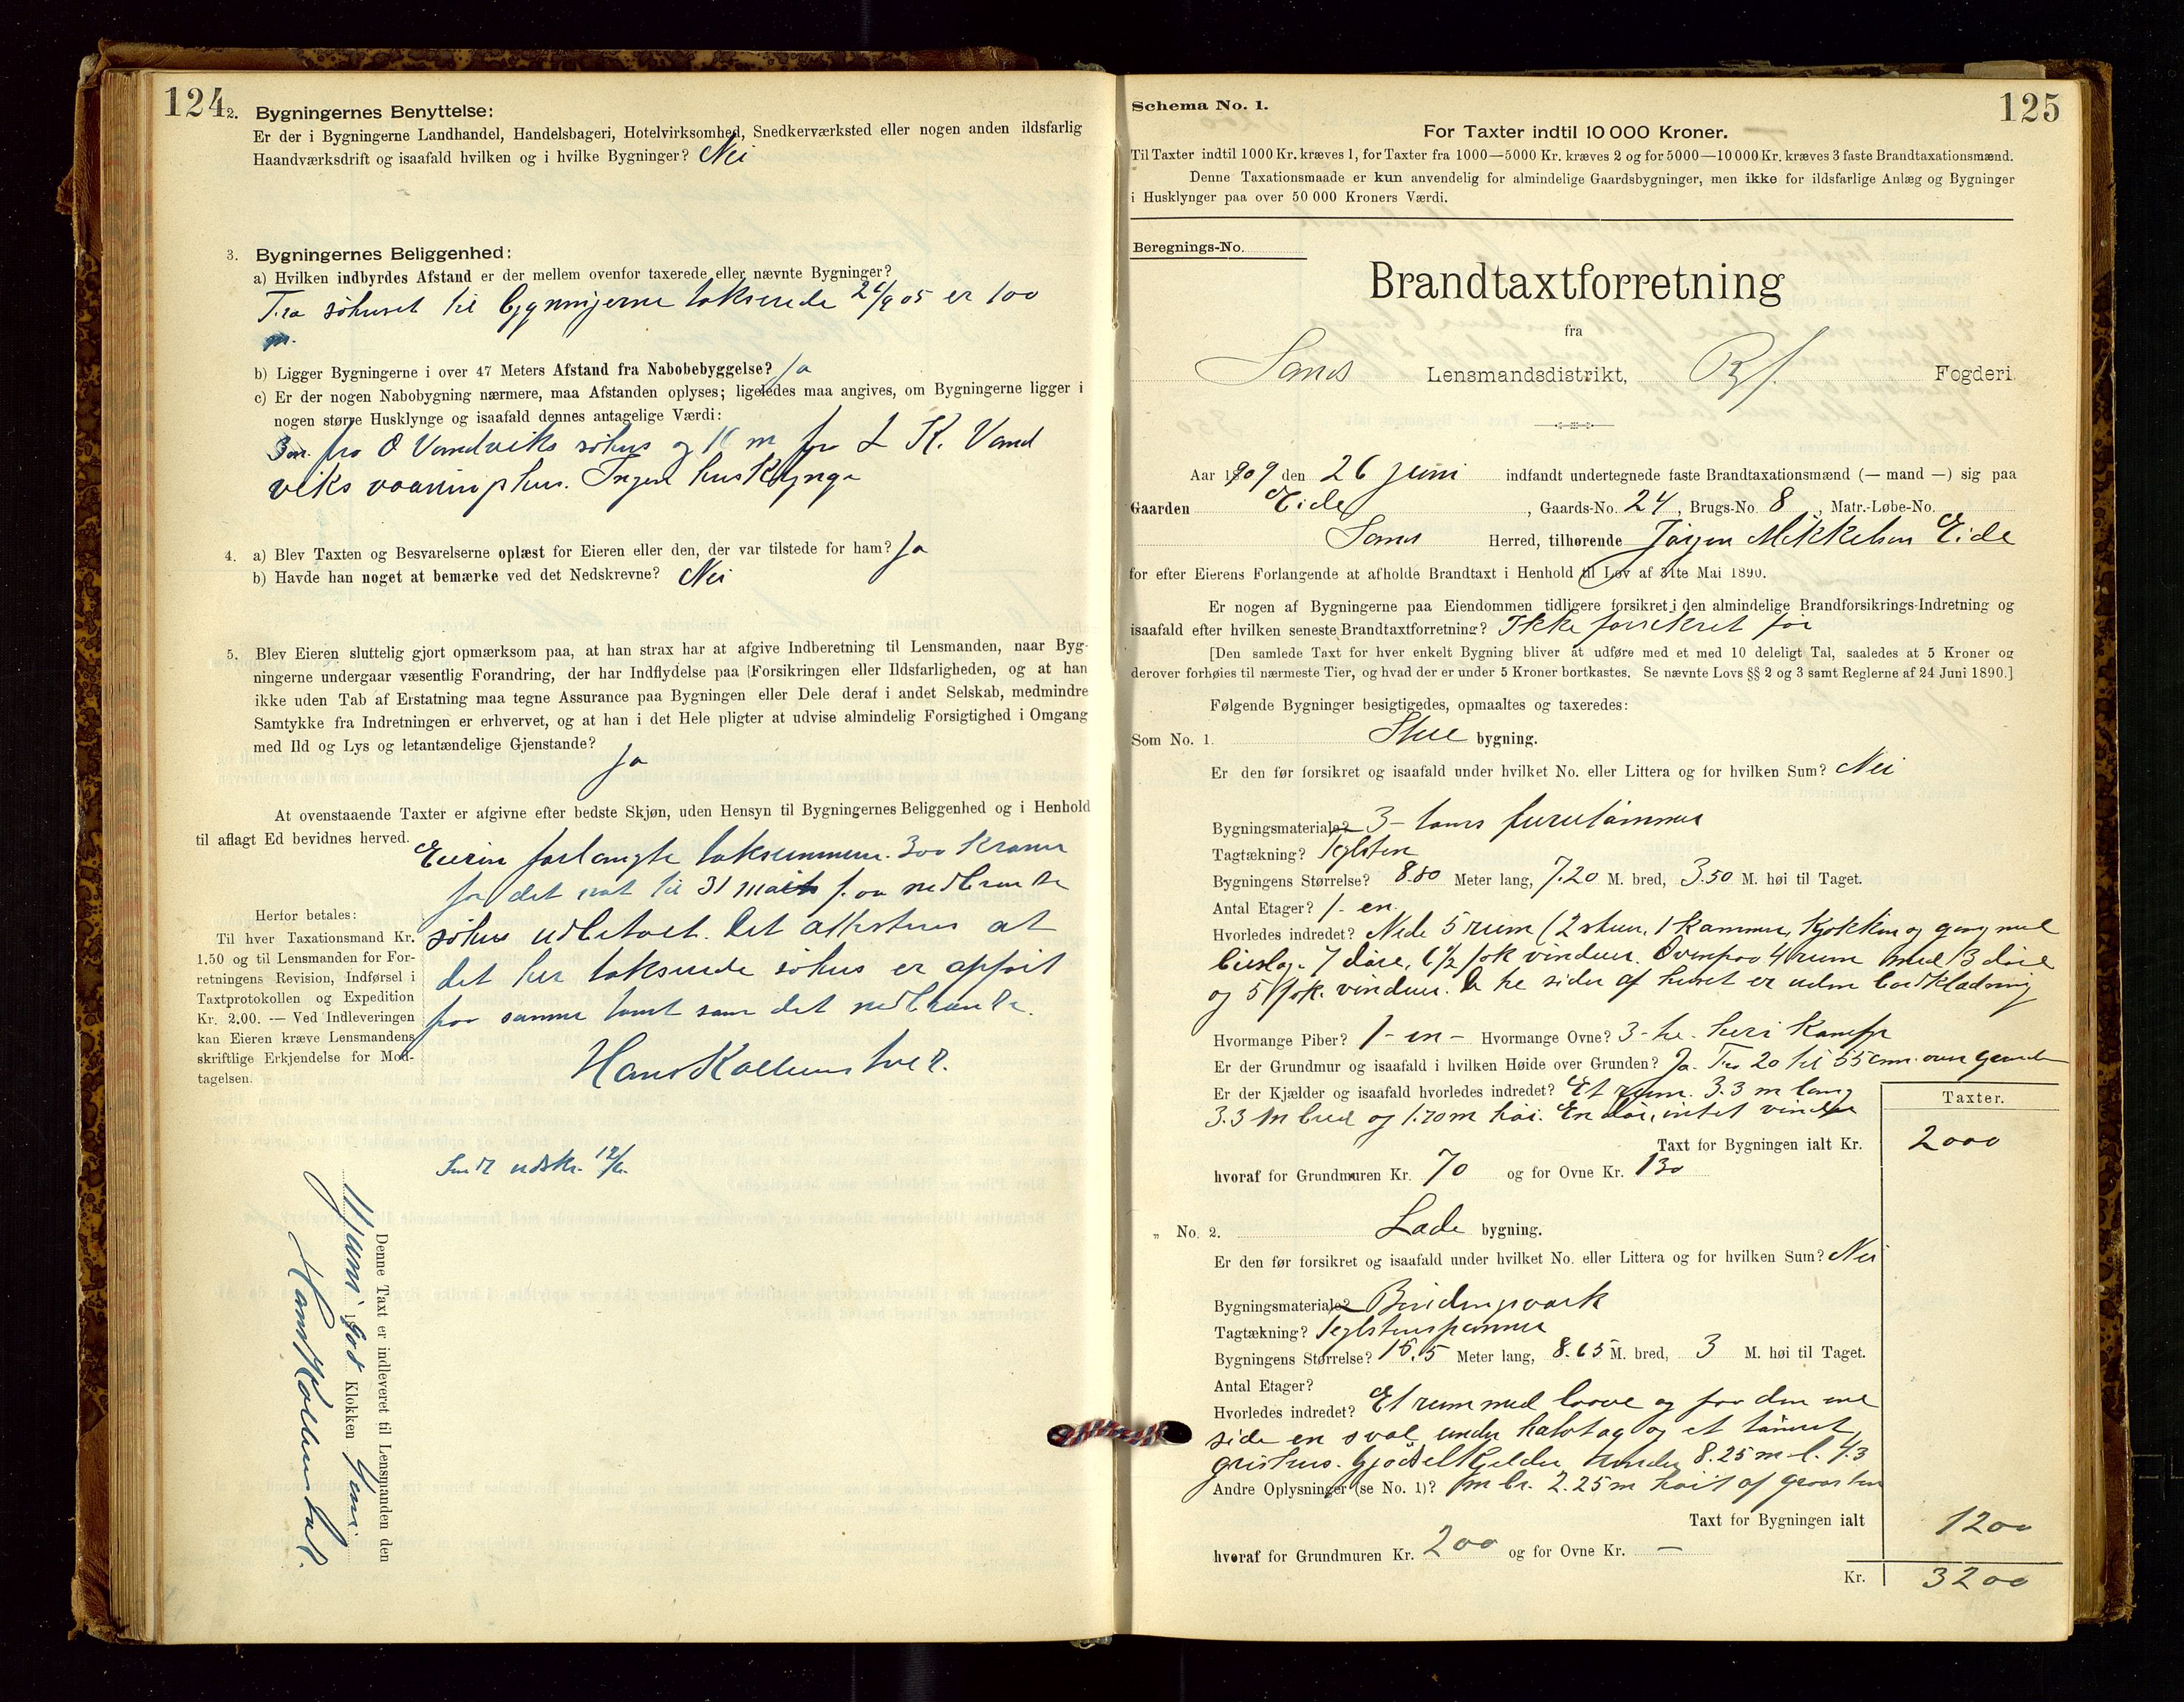 124
2. Bygningernes Benyttelse:
Er der i Bygningerne Landhandel, Handelsbageri, Hotelvirksomhed, Snedkerværksted eller nogen anden ildsfarlig
Haandværksdrift og isaafald hvilken og i hvilke Bygninger? Nei
3. Bygningernes Beliggenhed:
a) Hvilken indbyrdes Afstand er der mellem ovenfor taxerede eller nævnte Bygninger?
Fra söhuset til bygningerne takserede 9 05 er 100
m.
b) Ligger Bygningerne i over 47 Meters Afstand fra Nabobebyggelse? Ja
c) Er der nogen Nabobygning nærmere, maa Afstanden oplyses; ligeledes maa angives, om Bygningerne ligger i
nogen større Husklynge og isaafald dennes antagelige Værdi:
3 m. fra O Vandviks söhus og m fra L K. Vand
viks vaaningshus. Ingen husklynge
4. a) Blev Taxten og Besvarelserne oplæst for Eieren eller den, der var tilstede for ham? Ja
b) Havde han noget at bemærke ved det Nedskrevne? Nei
5. Blev Eieren sluttelig gjort opmærksom paa, at han strax har at afgive Indberetning til Lensmanden, naar Byg-
ningerne undergaar væsentlig Forandring, der har Indflydelse paa Forsikringen eller Ildsfarligheden, og at han
ikke uden Tab af Erstatning maa tegne Assurance paa Bygningen eller Dele deraf i andet Selskab, medmindre
Samtykke fra Indretningen er erhvervet, og at han i det Hele pligter at udvise almindelig Forsigtighed i Omgang
med Ild og Lys og letantændelige Gjenstande?
Ja
At ovenstaaende Taxter er afgivne efter bedste Skjøn, uden Hensyn til Bygningernes Beliggenhed og i Henhold
til aflagt Ed bevidnes herved.
Eieren forlangte taksummen 300 kroner
for det nat til 31 mai p. aa nedbrændte
söhus udbetalt. Det attesteres at
det her takserede söhus er opført
paa samme tomt som det nedbrændte.
Hans Kolbenstvedt.
Herfor betales:
Til hver Taxationsmand Kr.
1.50 og til Lensmanden for For-
retningens Revision, Indførsel i
Taxtprotokollen og Expedition
Kr. 2.00. — Ved Indleveringen
kan Eieren kræve Lensmandens
skriftlige Erkjendelse for Mod-
tagelsen.
Sendt udskr. 12/6.
Denne Taxt er indleveret til Lensmanden den
Juni 190 Klokken
Hans Kolbenstvedt.
125
Schema No. 1.
For Taxter indtil 10 000 Kroner.
Til Taxter indtil 1000 Kr. kræves 1, for Taxter fra 1000—5000 Kr. kræves 2 og for 5000—10 000 Kr. kræves 3 faste Brandtaxationsmænd.
Denne Taxationsmaade er kun anvendelig for almindelige Gaardsbygninger, men ikke for ildsfarlige Anlæg og Bygninger
i Husklynger paa over 50 000 Kroners Værdi.
Beregnings-No.
Brandtaxtforretning
fra
Sands Lensmandsdistrikt, Ryf. Fogderi.
Aar 1909 den 26 juni indfandt undertegnede faste Brandtaxationsmænd (— mand —) sig paa
Gaarden Eide, Gaards-No. 24, Brugs-No. 8, Matr.-Løbe-No.
Sands Herred, tilhørende Jørgen Mikkelsen Eide
for efter Eierens Forlangende at afholde Brandtaxt i Henhold til Lov af 31te Mai 1890.
Er nogen af Bygningerne paa Eiendommen tidligere forsikret i den almindelige Brandforsikrings-Indretning og
isaafald efter hvilken seneste Brandtaxtforretning? Ikke forsikret før
[Den samlede Taxt for hver enkelt Bygning bliver at udføre med et med 10 deleligt Tal, saaledes at 5 Kroner og
derover forhøies til nærmeste Tier, og hvad der er under 5 Kroner bortkastes. Se nævnte Lovs §§ 2 og 3 samt Reglerne af 24 Juni 1890.]
Følgende Bygninger besigtigedes, opmaaltes og taxeredes:
Som No. 1. Stue bygning.
Er den før forsikret og isaafald under hvilket No. eller Littera og for hvilken Sum? Nei
Bygningsmateriale? 3- toms furutömmer
Tagtækning? Teglsten
Bygningens Størrelse? 8.80 Meter lang, 7.20 M. bred, 3.50 M. høi til Taget.
Antal Etager? 1- en.
Hvorledes indredet? Nede 5 rum (2 stuer, 1 kammer, kjøkken og gang med
bislag. 7 døre, 6 1/2 fok vinduer. Ovenpaa 4 rum med 3 døre
og 5 fok. vinduer. De tre sider af huset er uden bordklædning
Hvormange Piber? 1- en - Hvormange Ovne? 3- tre.
Er der Grundmur og isaafald i hvilken Høide over Grunden? Ja. Fra 20 til 55 cm. over grunden
Er der Kjælder og isaafald hvorledes indredet? Et rum. 3.3 m lang
3.3 m bred og 1.70 m høi. En dör, intet vindu
Taxter.
Taxt for Bygningen ialt Kr. 2000
hvoraf for Grundmuren Kr. 70 og for Ovne Kr. 130
„ No. 2. Lade bygning.
Er den før forsikret og isaafald under hvilket No. eller Littera og for hvilken Sum? Nei
Bygningsmateriale? Bindingsværk
Tagtækning? Teglstenspanner
Bygningens Størrelse? 15.5 Meter lang, 8.65 M. bred, 3 M. høi til Taget.
Antal Etager?
Hvorledes indredet? Et rum med laave og paa den ene
side en sval under halvtag og et tömret
grishus. Gjødselkjelder under 8.25 m l. 4.3
Andre Oplysninger (se No. 1)? m br. 2.25 m høit af graasten
Taxt for Bygningen ialt 1200
hvoraf for Grundmuren Kr. 200 og for Ovne Kr. —
Kr. 3200